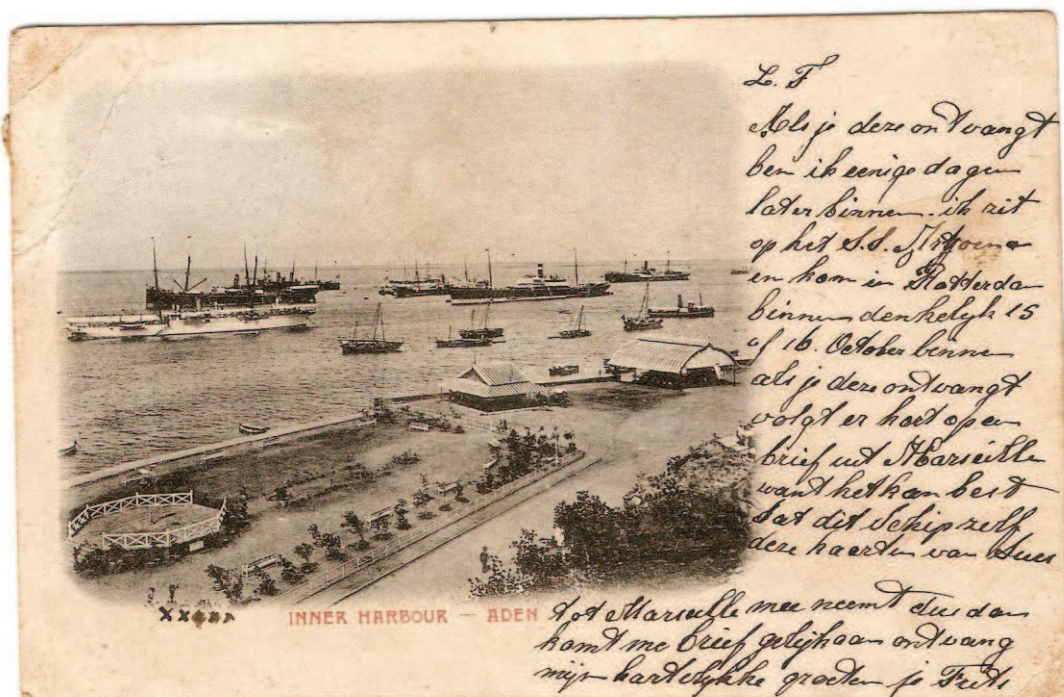 L. F
Als je deze ontvangt
ben ik eenige dagen
later binnen. ik zit
op het S.S.
en kom in Rotterdam
binnen denkelyk 15
of 16. October binnen
als je deze ontvangt
volgt er kort op en
brief uit Marseille
want het kan best
dat dit schip zelf
deze kaarten van Sues
INNER HARBOUR — ADEN
tot Marseille mee neemt dus dan
komt me brief gelijk aan ontvang
mijn hartelykke groeten je Frits